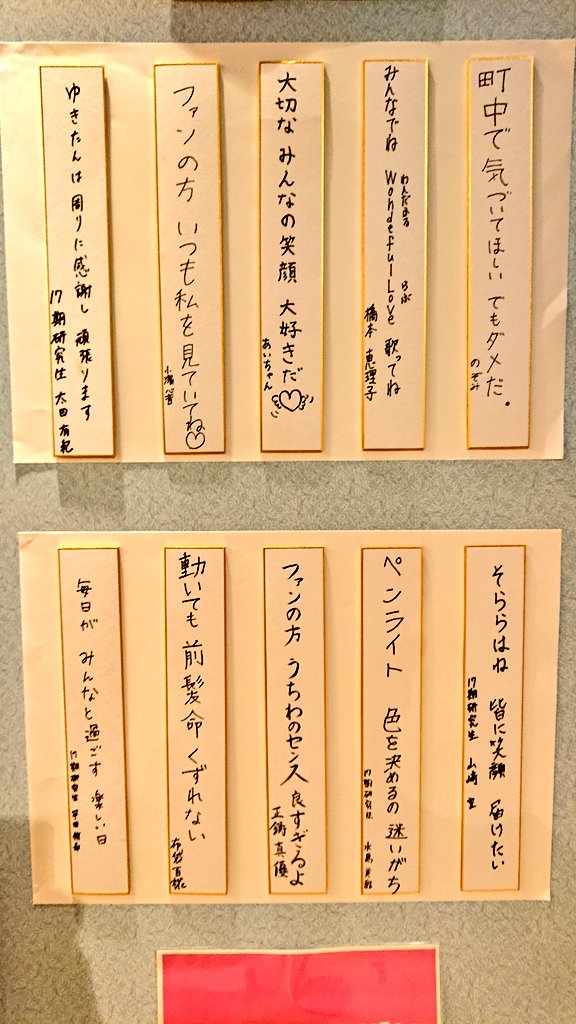 町中で 気づいてほしい でもダメだ。
のぞみ
みんなでね WondefulLove 歌ってね
わんだふる らぶ
橋本 恵理子
大切な みんなの笑顔 大好きだ♡
あいちゃん
ファンの方 いつも私を見ていてね♡
ゆきたんは 周りに感謝し 頑張ります
17期研究生 太田 有紀
そららはね 皆に笑顔 届けたい
17期研究生 山崎 空
ペンライト 色を決めるの 迷いがち
17期研究生 水島 美結
ファンの方 うちわのセンス 良すぎるよ
正鋳 真優
動いても 前髪命 くずれない
布袋 百椛
毎日が みんなと過ごす 楽しい日
17期研究生 平田